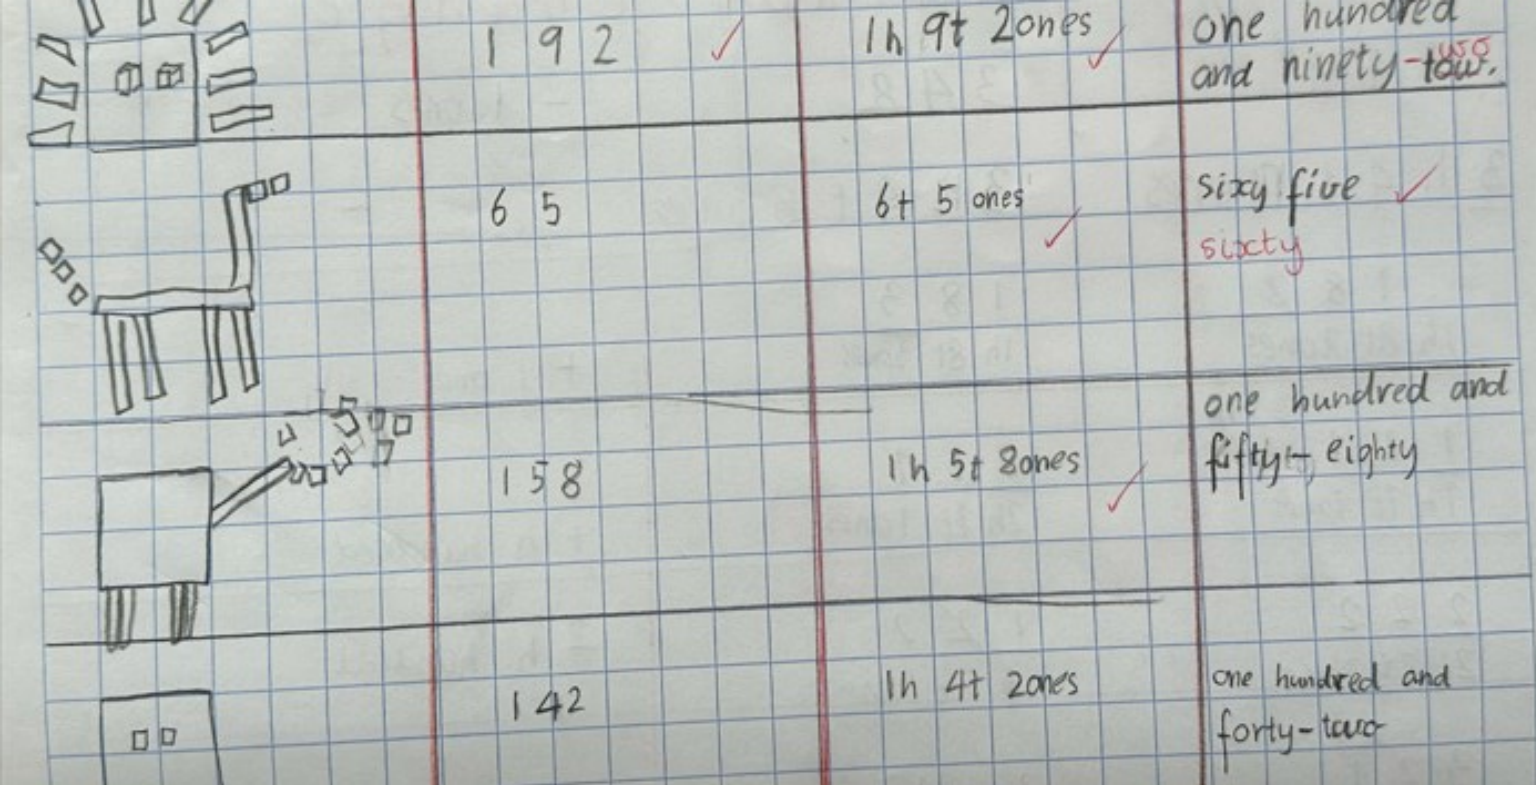 1 9 2
1h 9t 2ones
one hundred
and ninety-tow.
wo
6 5
6t 5 ones
sixy five
sixcty
158
1h 5t 8ones
one hundred and
fifty- eighty
142
1h 4t 2ones
one hundred and
forty-two